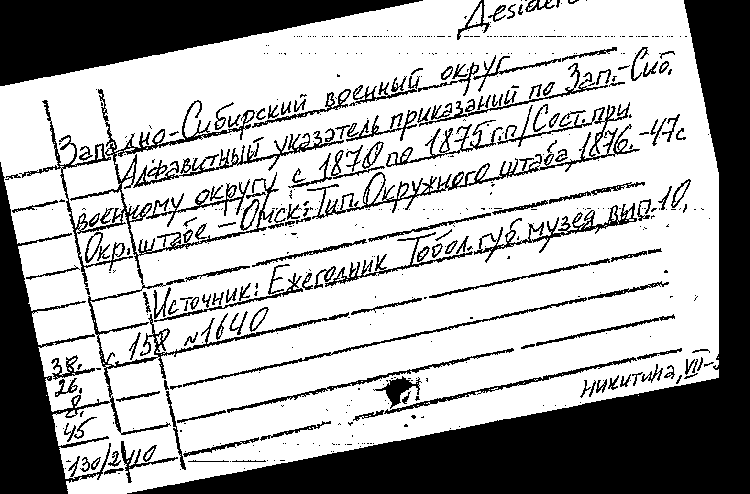 Западно-Сибирский военный округ
Алфавитный указатель приказаний по Зап.-Сиб.
военному округу с 1870 по 1875 г.г./Сост. при
Окр. штабе – Омск: Тип. Окружного штаба, 1876. – 47с
Источник: Ежегодник Тобол. губ. музея, вып. 10,
с. 158, №1640
38.
26.
8.
45
130/2410
Никитина, VII-